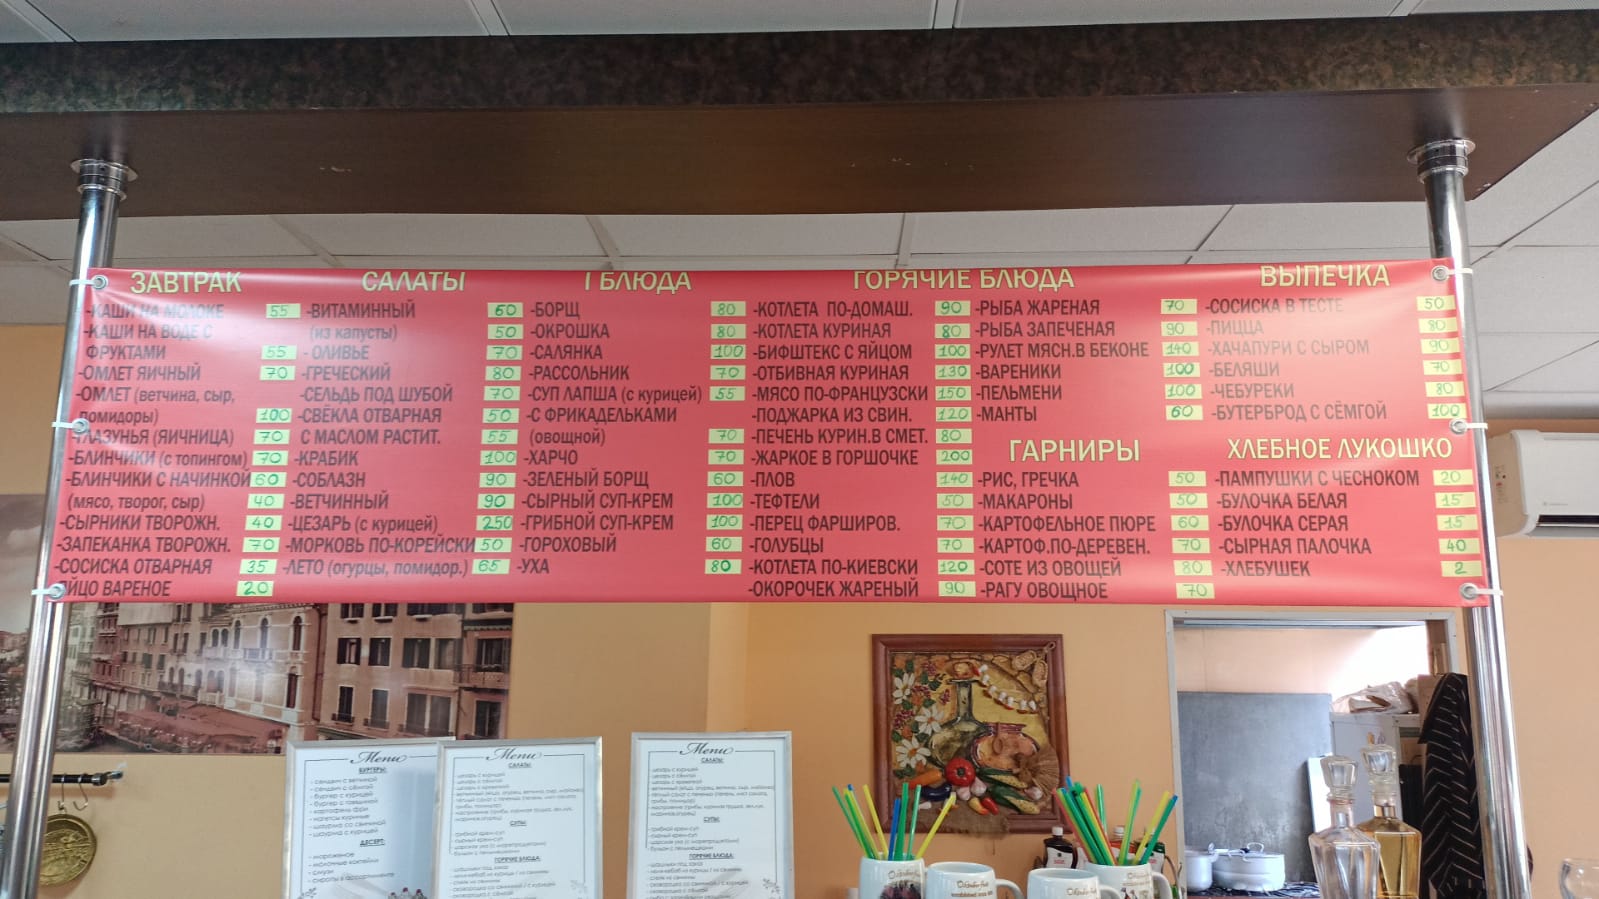 ЗАВТРАК
-КАШИ НА МОЛОКЕ 55
-КАШИ НА ВОДЕ С
ФРУКТАМИ 55
-ОМЛЕТ ЯИЧНЫЙ 70
-ОМЛЕТ (ветчина, сыр,
помидоры) 100
-ГЛАЗУНЬЯ (ЯИЧНИЦА) 70
-БЛИНЧИКИ (с топингом) 70
-БЛИНЧИКИ С НАЧИНКОЙ 60
(мясо, творог, сыр) 40
-СЫРНИКИ ТВОРОЖН. 40
-ЗАПЕКАНКА ТВОРОЖН. 70
-СОСИСКА ОТВАРНАЯ 35
ЯЙЦО ВАРЕНОЕ 20
САЛАТЫ
-ВИТАМИННЫЙ 60
(из капусты) 50
- ОЛИВЬЕ 70
-ГРЕЧЕСКИЙ 80
-СЕЛЬДЬ ПОД ШУБОЙ 70
-СВЁКЛА ОТВАРНАЯ 50
С МАСЛОМ РАСТИТ. 55
-КРАБИК 100
-СОБЛАЗН 90
-ВЕТЧИННЫЙ 90
-ЦЕЗАРЬ (с курицей) 250
-МОРКОВЬ ПО-КОРЕЙСКИ 50
-ЛЕТО (огурцы, помидор.) 65
I БЛЮДА
-БОРЩ 80
-ОКРОШКА 80
-САЛЯНКА 100
-РАССОЛЬНИК 70
-СУП ЛАПША (с курицей) 55
-С ФРИКАДЕЛЬКАМИ
(овощной) 70
-ХАРЧО 70
-ЗЕЛЕНЫЙ БОРЩ 60
-СЫРНЫЙ СУП-КРЕМ 100
-ГРИБНОЙ СУП-КРЕМ 100
-ГОРОХОВЫЙ 60
-УХА 80
ГОРЯЧИЕ БЛЮДА
-КОТЛЕТА ПО-ДОМАШ. 90
-КОТЛЕТА КУРИНАЯ 80
-БИФШТЕКС С ЯЙЦОМ 100
-ОТБИВНАЯ КУРИНАЯ 130
-МЯСО ПО-ФРАНЦУЗСКИ 150
-ПОДЖАРКА ИЗ СВИН. 120
-ПЕЧЕНЬ КУРИН.В СМЕТ. 80
-ЖАРКОЕ В ГОРШОЧКЕ 200
-ПЛОВ 140
-ТЕФТЕЛИ 50
-ПЕРЕЦ ФАРШИРОВ. 70
-ГОЛУБЦЫ 70
-КОТЛЕТА ПО-КИЕВСКИ 120
-ОКОРОЧЕК ЖАРЕНЫЙ 90
-РЫБА ЖАРЕНАЯ 70
-РЫБА ЗАПЕЧЕНАЯ 90
-РУЛЕТ МЯСН.В БЕКОНЕ 140
-ВАРЕНИКИ 100
-ПЕЛЬМЕНИ 100
-МАНТЫ 60
ГАРНИРЫ
-РИС, ГРЕЧКА 50
-МАКАРОНЫ 50
-КАРТОФЕЛЬНОЕ ПЮРЕ 60
-КАРТОФ.ПО-ДЕРЕВЕН. 70
-СОТЕ ИЗ ОВОЩЕЙ 80
-РАГУ ОВОЩНОЕ 70
ВЫПЕЧКА
-СОСИСКА В ТЕСТЕ 50
-ПИЦЦА 80
-ХАЧАПУРИ С СЫРОМ 90
-БЕЛЯШИ 70
-ЧЕБУРЕКИ 80
-БУТЕРБРОД С СЁМГОЙ 100
ХЛЕБНОЕ ЛУКОШКО
-ПАМПУШКИ С ЧЕСНОКОМ 20
-БУЛОЧКА БЕЛАЯ 15
-БУЛОЧКА СЕРАЯ 15
-СЫРНАЯ ПАЛОЧКА 40
-ХЛЕБУШЕК 2
Menu
БУРГЕРЫ:
- сендвич с ветчиной
- сендвич с сёмгой
- бургер с курицей
- бургер с говядиной
- картофель фри
- нагетсы куриные
- шаурма со свининой
- шаурма с курицей
ДЕСЕРТ:
- мороженое
- молочные коктейли
- смузи
- сиропы в ассортименте
Menu
САЛАТЫ:
-цезарь с курицей
-цезарь с сёмгой
-цезарь с креветкой
СУПЫ:
-грибной крем-суп
-сырный крем-суп
-царская уха (с морепродуктами)
ГОРЯЧИЕ БЛЮДА:
Menu
САЛАТЫ:
-цезарь с курицей
-цезарь с сёмгой
-цезарь с креветкой
СУПЫ:
-грибной крем-суп
-сырный крем-суп
-царская уха (с морепродуктами)
ГОРЯЧИЕ БЛЮДА:
Oktoberfest
Oktoberfest